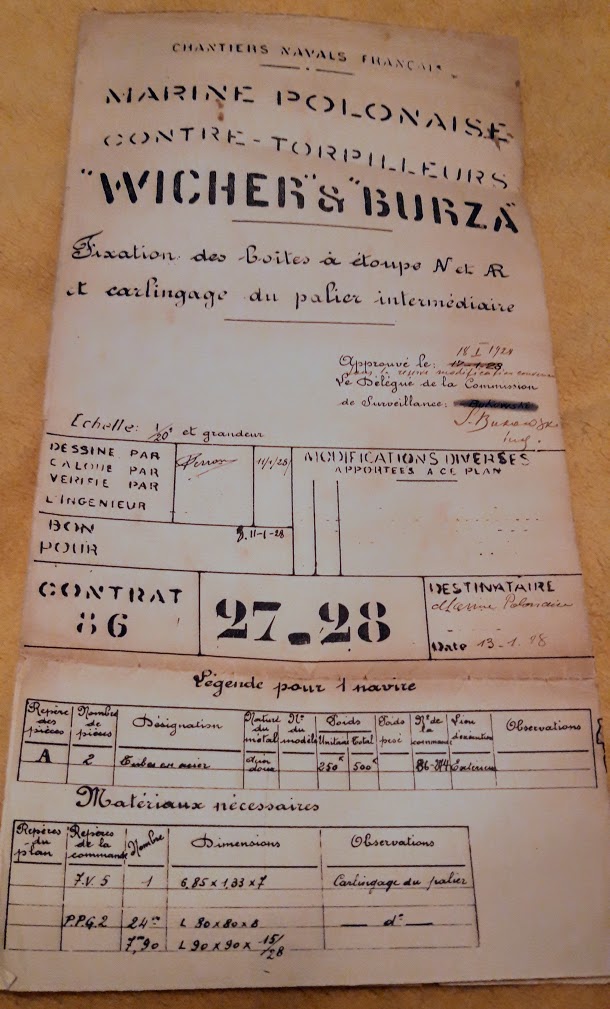 CHANTIERS NAVALS FRANÇAIS
MARINE POLONAISE
CONTRE-TORPILLEURS
"WICHER" & "BURZA"
Fixation des boites à étoupe N et AR
et carlingage du palier intermédiaire
18 I 1928
Approuvé le: 17-1-28
Le Délégué de la Commission
de Surveillance:
Echelle: 1/20e et grandeur
DESSINE PAR
CALQUE PAR
VERIFIE PAR
L'INGENIEUR
11/1/28
MODIFICATIONS DIVERSES
APPORTEES A CE PLAN
BON
POUR
11-1-28
CONTRAT
86
27-28
DESTINATAIRE
Marine Polonaise
Date 13-1-28
Légende pour 1 navire
Repère des pièces Nombre de pièces Désignation Nature du métal N° du modèle Poids Unitaire Total Poids pesé N° de la commande Lieu d'exécution Observations
A 2 Tubes en acier acier doux 250k 500k 86-284 Extérieur
Matériaux nécessaires
Repères du plan Repères de la commande Nombre Dimensions Observations
7.V.5 1 6,85 x 1,33 x 7 Carlingage du palier
P.P.G.2 24m L 80 x 80 x 8 — d° —
7m,90 L 90 x 90 x 15/28